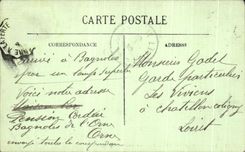 CARTE POSTALE
CORRESPONDANCE
ADRESSE
Arrivé à Bagnoles
par un temps superbe
Voici notre adresse
Pension Cordier
Bagnoles de l'Orne
Orne
envoyer toute la correspondance
Monsieur Godet
Garde particulier
Les Viviers
à Chatillon Coligny
Loiret